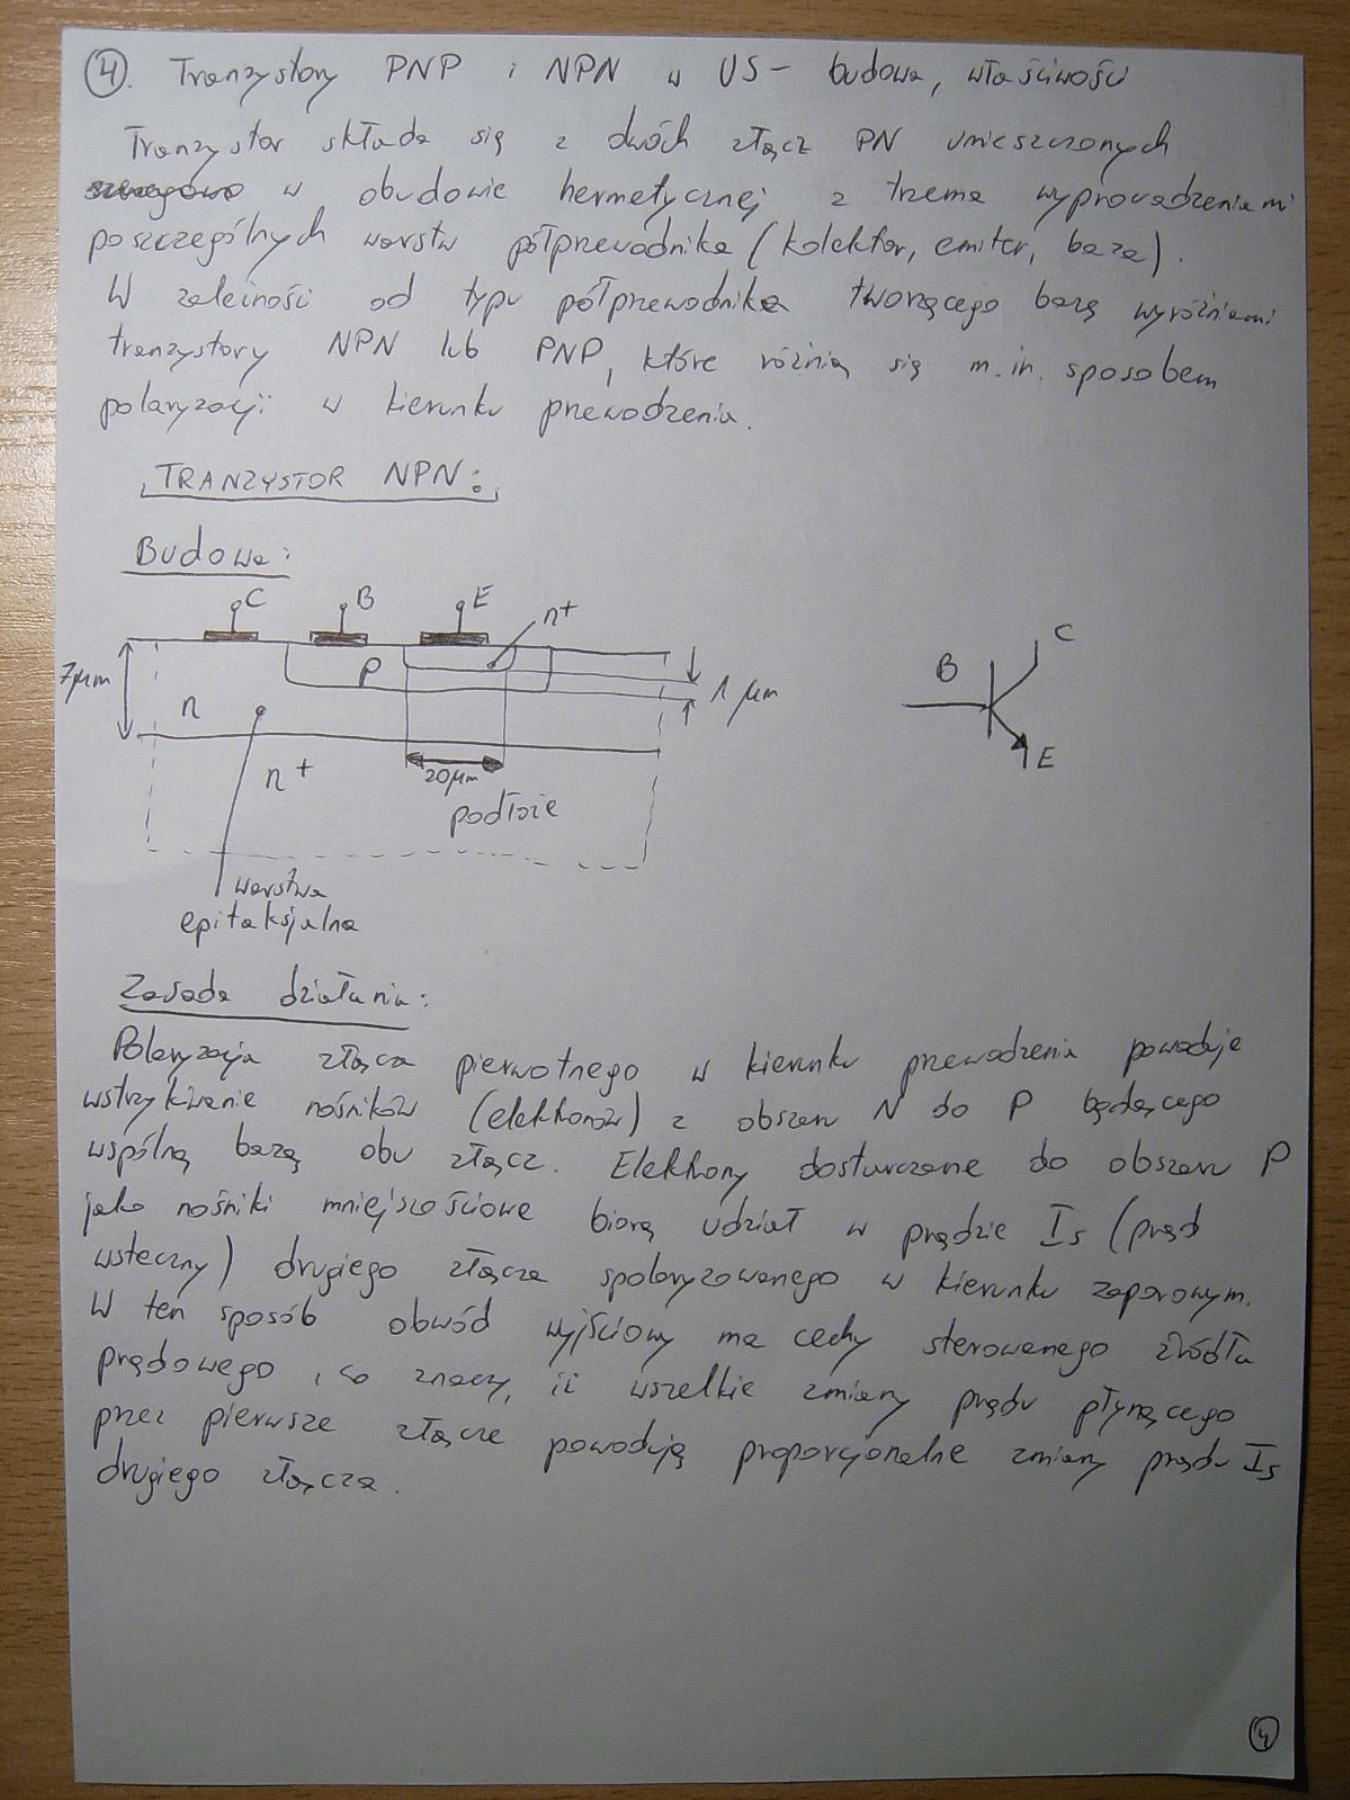 4. Tranzystory PNP i NPN w US - budowa, właściwości
Tranzystor składa się z dwóch złącz PN umieszczonych
w obudowie hermetycznej z trzema wyprowadzeniami
poszczególnych warstw półprzewodnika (kolektor, emiter, baza).
W zależności od typu półprzewodnika tworzącego bazę wyróżniamy
tranzystory NPN lub PNP, które różnią się m.in. sposobem
polaryzacji w kierunku przewodzenia.
TRANZYSTOR NPN:
Budowa:
C B E n+
7μm P 1 μm
n
n+
20μm
podłoże
warstwa
epitaksjalna
C
B
E
Zasada działania:
Polaryzacja złącza pierwotnego w kierunku przewodzenia powoduje
wstrzykiwanie nośników (elektronów) z obszaru N do P będącego
wspólną bazą obu złącz. Elektrony dostarczone do obszaru P
jako nośniki mniejszościowe biorą udział w prądzie Is (prąd
wsteczny) drugiego złącza spolaryzowanego w kierunku zaporowym.
W ten sposób obwód wyjściowy ma cechy sterowanego źródła
prądowego, co znaczy, iż wszelkie zmiany prądu płynącego
przez pierwsze złącze powodują proporcjonalne zmiany prądu Is
drugiego złącza.
4